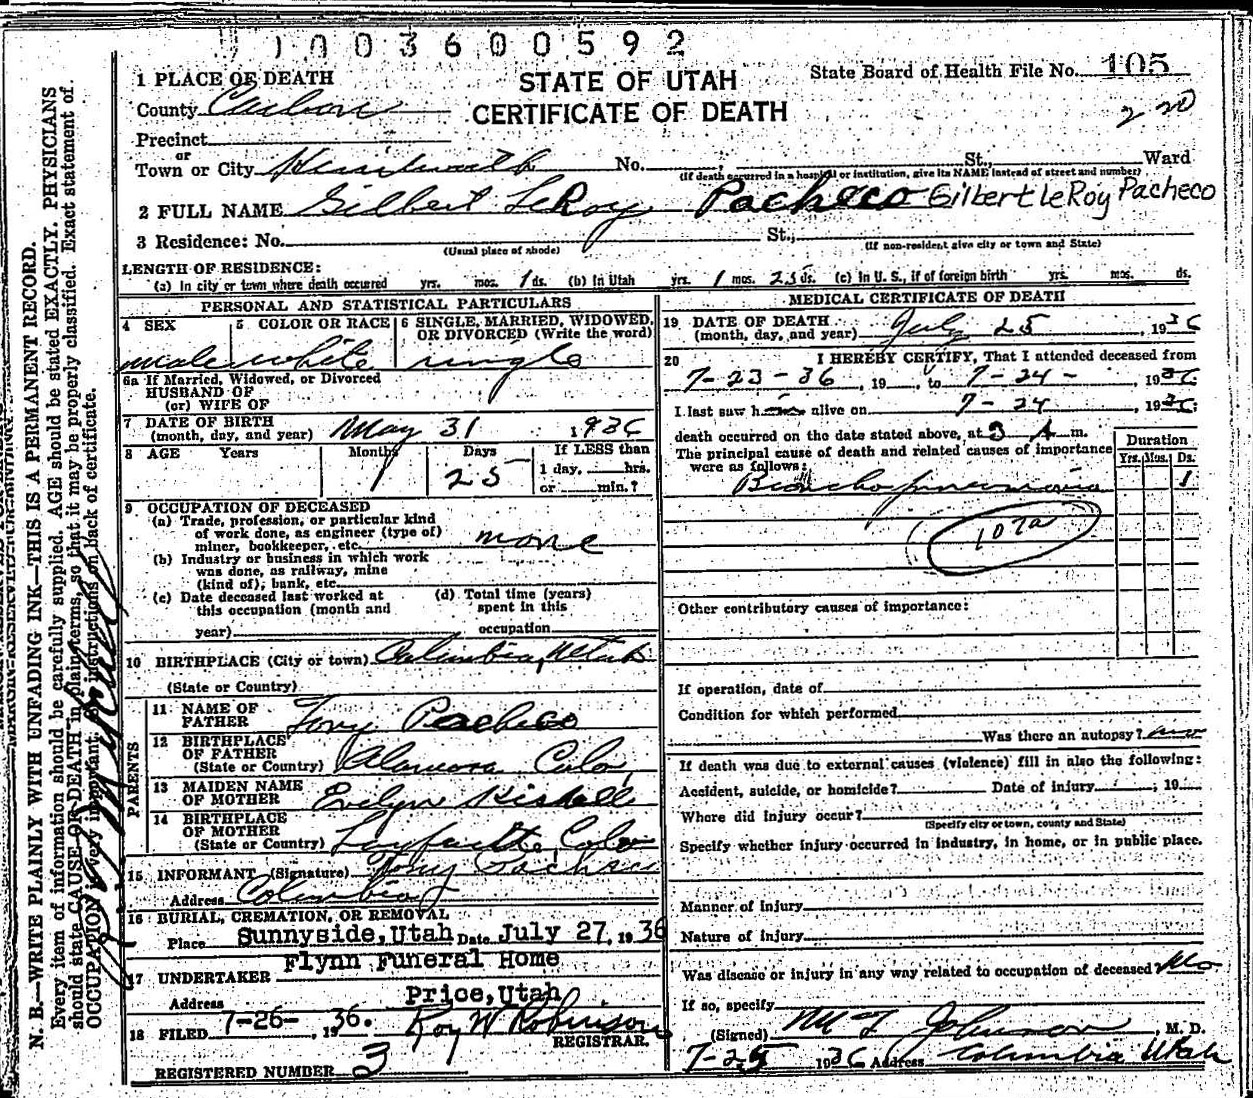 1003600592
1 PLACE OF DEATH
STATE OF UTAH
CERTIFICATE OF DEATH
State Board of Health File No. 105
County Carbon
2 20
Precinct
or
Town or City Kenilworth No. St., Ward
(If death occurred in a hospital or institution, give its NAME instead of street and number)
2 FULL NAME Gilbert LeRoy Pacheco Gilbert LeRoy Pacheco
3 Residence: No. St.,
(Usual place of abode) (If non-resident give city or town and State)
LENGTH OF RESIDENCE:
(a) In city or town where death occurred yrs. mos. 1 ds. (b) In Utah yrs. 1 mos. 25 ds. (c) In U. S., if of foreign birth yrs. mos. ds.
PERSONAL AND STATISTICAL PARTICULARS
4 SEX 5 COLOR OR RACE 6 SINGLE, MARRIED, WIDOWED, OR DIVORCED (Write the word)
male white single
6a If Married, Widowed, or Divorced
HUSBAND OF
(or) WIFE OF
7 DATE OF BIRTH
(month, day, and year) May 31 1936
8 AGE Years Months Days If LESS than
1 25 1 day, hrs.
or min.?
9 OCCUPATION OF DECEASED
(a) Trade, profession, or particular kind
of work done, as engineer (type of)
miner, bookkeeper, etc. none
(b) Industry or business in which work
was done, as railway, mine
(kind of), bank, etc.
(c) Date deceased last worked at
this occupation (month and
year)
(d) Total time (years)
spent in this
occupation
10 BIRTHPLACE (City or town) Columbia, Utah
(State or Country)
PARENTS
11 NAME OF
FATHER Tony Pacheco
12 BIRTHPLACE
OF FATHER
(State or Country) Alamosa Colo,
13 MAIDEN NAME
OF MOTHER Evelyn
14 BIRTHPLACE
OF MOTHER
(State or Country) Layfaitte Colo
15 INFORMANT (Signature) Tony Pacheco
Address Columbia
16 BURIAL, CREMATION, OR REMOVAL
Place Sunnyside, Utah Date July 27, 1936
17 UNDERTAKER Flynn Funeral Home
Address Price, Utah
18 FILED 7-26-, 1936. Roy W Robinson
REGISTRAR.
REGISTERED NUMBER 3
MEDICAL CERTIFICATE OF DEATH
19 DATE OF DEATH
(month, day, and year) July 25, 1936
20 I HEREBY CERTIFY, That I attended deceased from
7-23-36, 19 , to 7-24-, 1936
I last saw h alive on 7-24, 1936;
death occurred on the date stated above, at 3 A m.
The principal cause of death and related causes of importance
were as follows:
Duration
Yrs. Mos. Ds.
Bronchopneumonia 1
107a
Other contributory causes of importance:
If operation, date of
Condition for which performed
Was there an autopsy? no
If death was due to external causes (violence) fill in also the following:
Accident, suicide, or homicide? Date of injury , 19
Where did injury occur?
(Specify city or town, county and State)
Specify whether injury occurred in industry, in home, or in public place.
Manner of injury
Nature of injury
Was disease or injury in any way related to occupation of deceased No
If so, specify
(Signed) Johnson, M. D.
7-25 1936 Address Columbia Utah
N. B.—WRITE PLAINLY WITH UNFADING INK—THIS IS A PERMANENT RECORD.
Every item of information should be carefully supplied. AGE should be stated EXACTLY. PHYSICIANS
should state CAUSE OF DEATH in plain terms, so that it may be properly classified. Exact statement of
OCCUPATION is very important. See instructions on back of certificate.